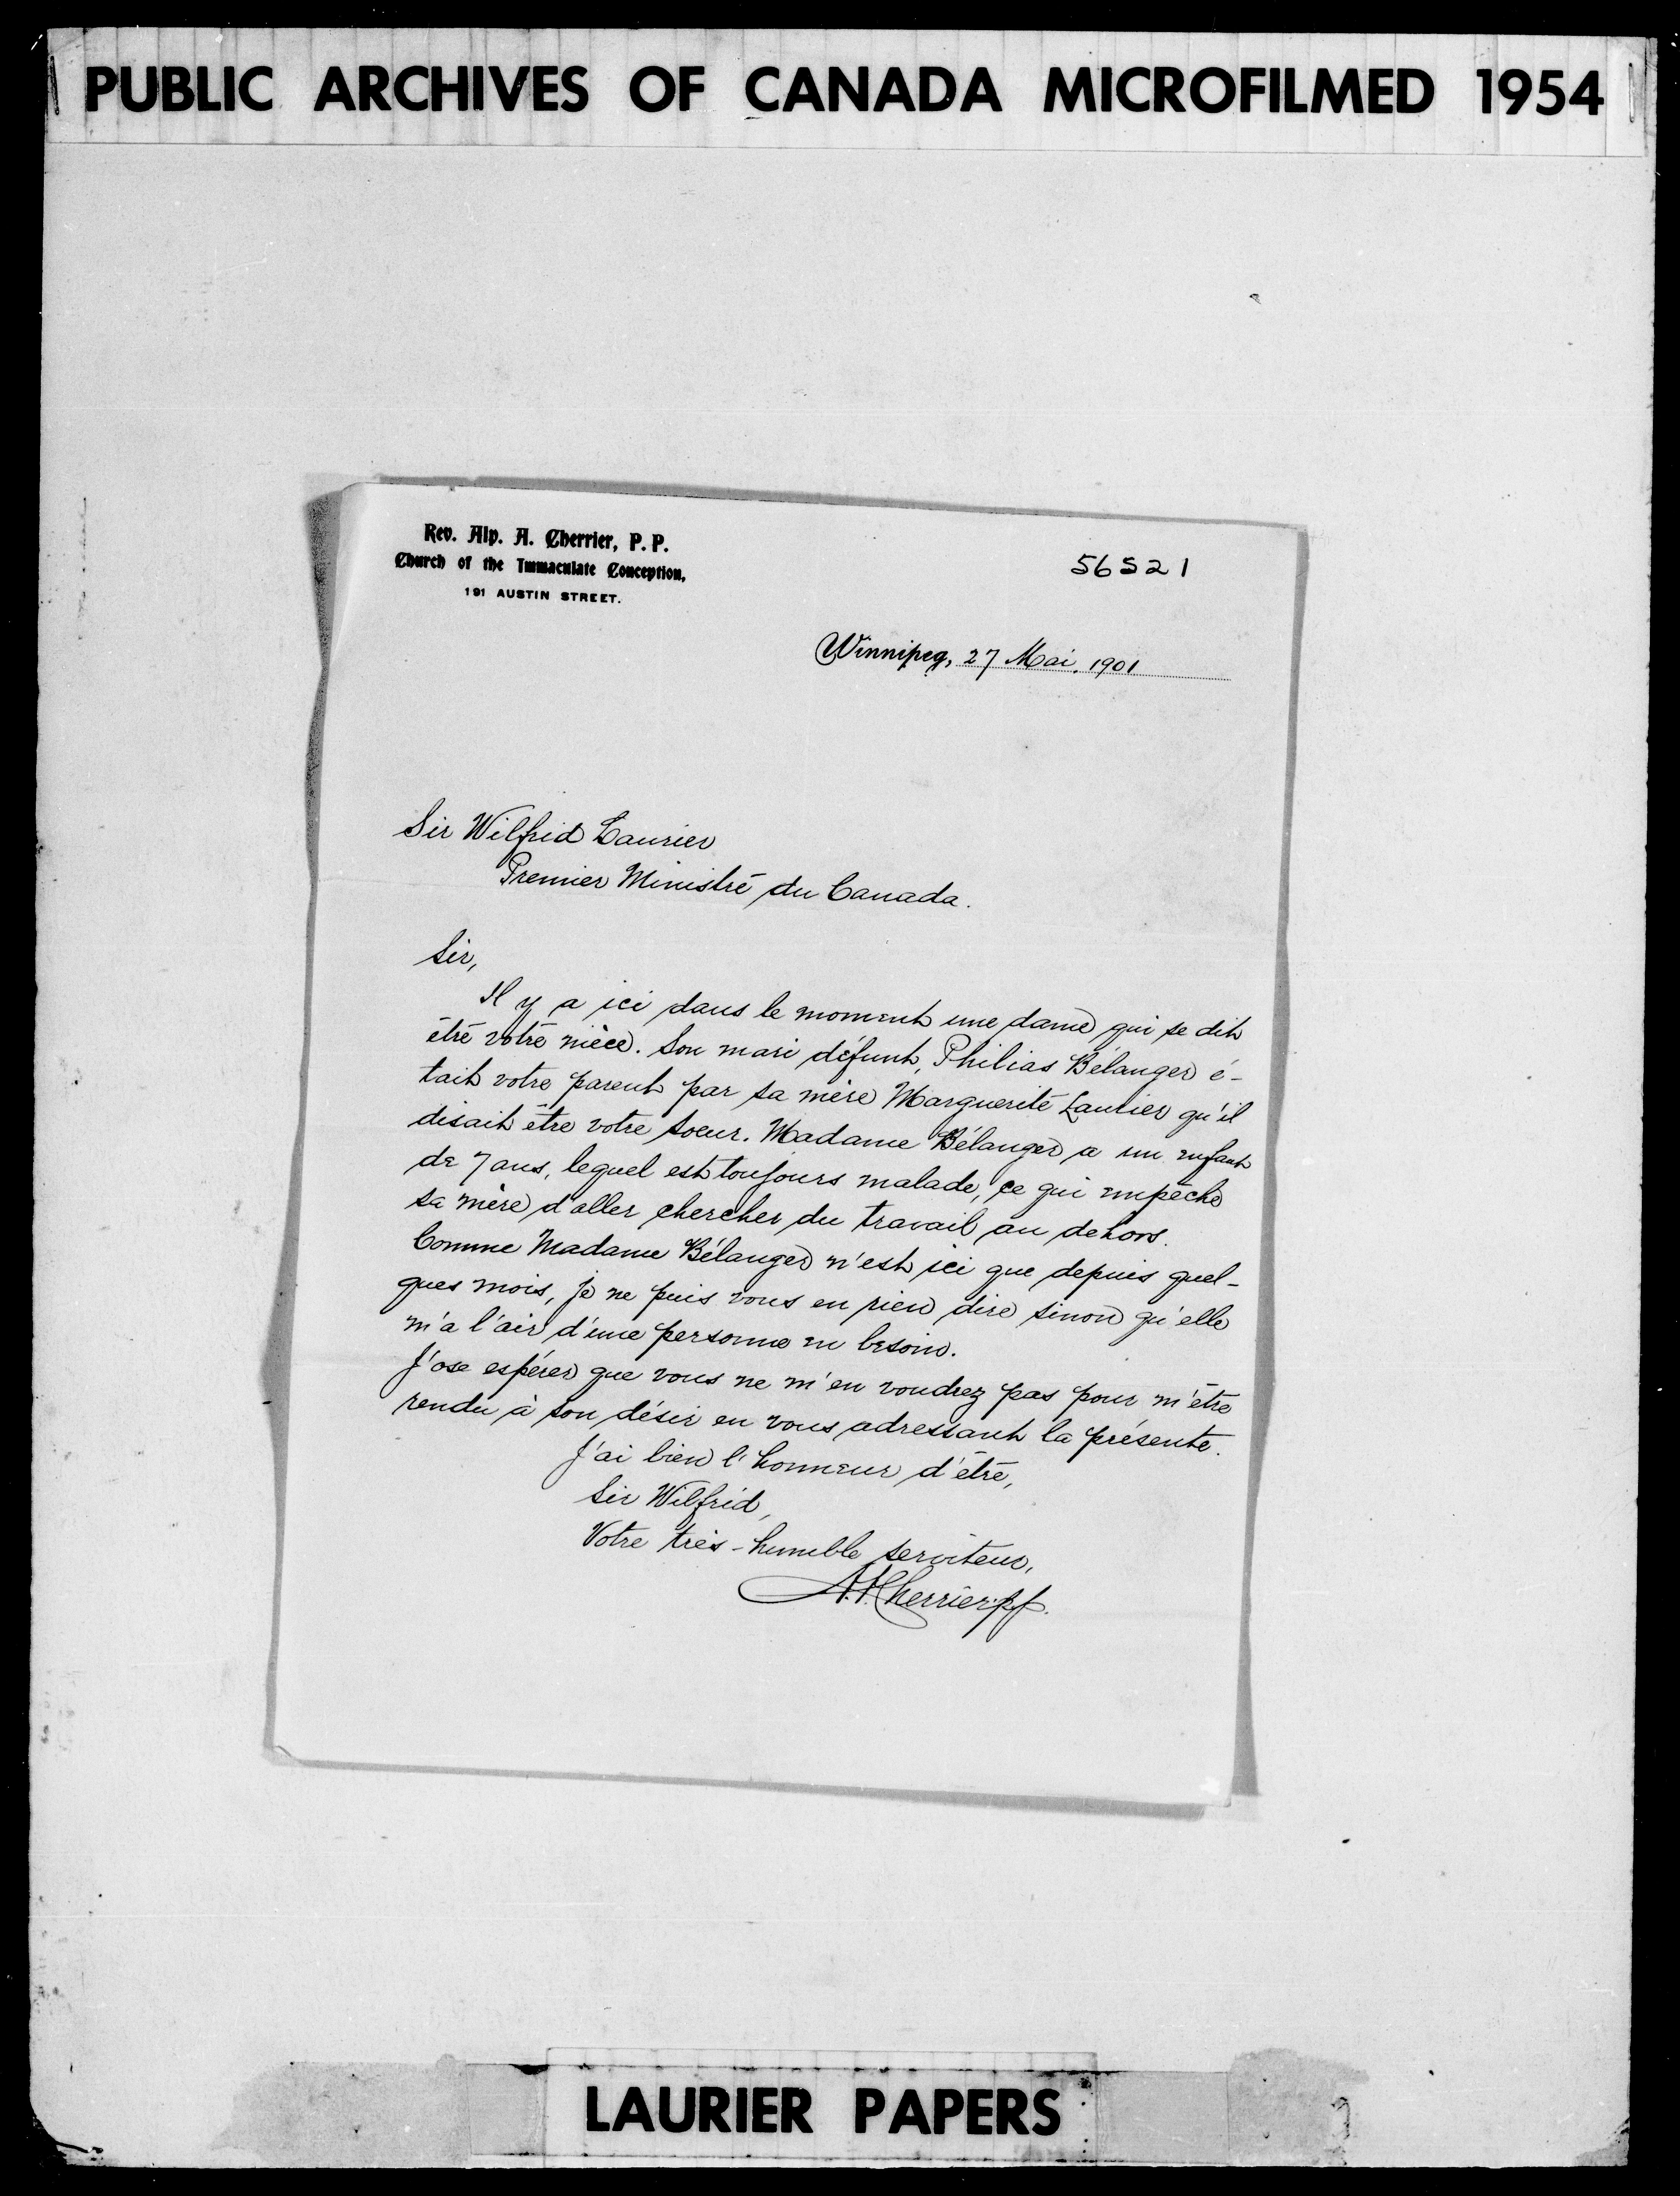 PUBLIC ARCHIVES OF CANADA MICROFILMED 1954
Rev. Alp. A. Cherrier, P. P.
Church of the Immaculate Conception,
191 AUSTIN STREET.
56521
Winnipeg, 27 Mai, 1901
Sir Wilfrid Laurier
Premier Ministre du Canada.
Sir,
Il y a ici dans le moment une dame qui se dit
être votre nièce. Son mari défunt, Philias Bélanger é-
tait votre parent par sa mère Marguerite Laurier qu'il
disait être votre soeur. Madame Bélanger a un enfant
de 7 ans, lequel est toujours malade, ce qui empêche
sa mère d'aller chercher du travail au dehors.
Comme Madame Bélanger n'est ici que depuis quel-
ques mois, je ne puis vous en rien dire sinon qu'elle
m'a l'air d'une personne en besoin.
J'ose espérer que vous ne m'en voudrez pas pour m'être
rendu à son désir en vous adressant la présente.
J'ai bien l'honneur d'être,
Sir Wilfrid,
Votre très-humble serviteur,
A. A. Cherrier. p.p.
LAURIER PAPERS